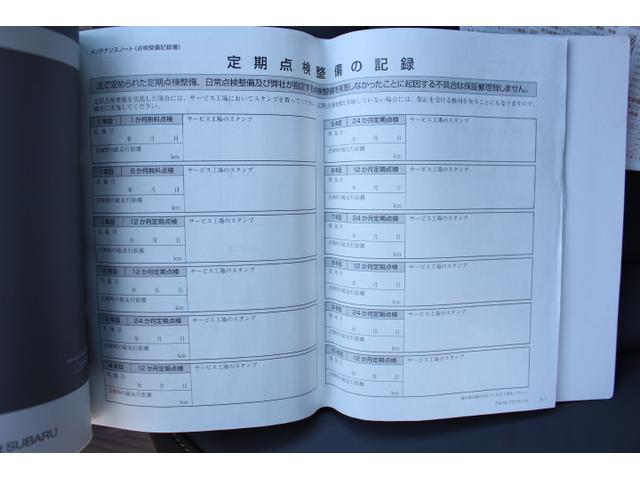 メンテナンスノート（点検整備記録簿）
定期点検整備の記録
法で定められた定期点検整備、日常点検整備及び弊社が指定する点検整備を実施しなかったことに起因する不具合は保証修理致しません。
定期点検整備を実施した場合には、サービス工場においてスタンプを
確実に実施してください。
1年目 1か月無料点検 サービス工場のスタンプ
実施日
年 月 日
点検時の総走行距離
km
1年目 6か月無料点検 サービス工場のスタンプ
実施日
年 月 日
点検時の総走行距離
km
1年目 12か月定期点検 サービス工場のスタンプ
実施日
年 月 日
点検時の総走行距離
km
2年目 12か月定期点検 サービス工場のスタンプ
実施日
年 月 日
点検時の総走行距離
km
3年目 24か月定期点検 サービス工場のスタンプ
実施日
年 月 日
点検時の総走行距離
km
4年目 12か月定期点検 サービス工場のスタンプ
実施日
年 月 日
点検時の総走行距離
km
5年目 24か月定期点検 サービス工場のスタンプ
実施日
年 月 日
点検時の総走行距離
km
6年目 12か月定期点検 サービス工場のスタンプ
実施日
年 月 日
点検時の総走行距離
km
7年目 24か月定期点検 サービス工場のスタンプ
実施日
年 月 日
点検時の総走行距離
km
8年目 12か月定期点検 サービス工場のスタンプ
実施日
年 月 日
点検時の総走行距離
km
9年目 24か月定期点検 サービス工場のスタンプ
実施日
年 月 日
点検時の総走行距離
km
10年目 12か月定期点検 サービス工場のスタンプ
実施日
年 月 日
点検時の総走行距離
km
SUBARU